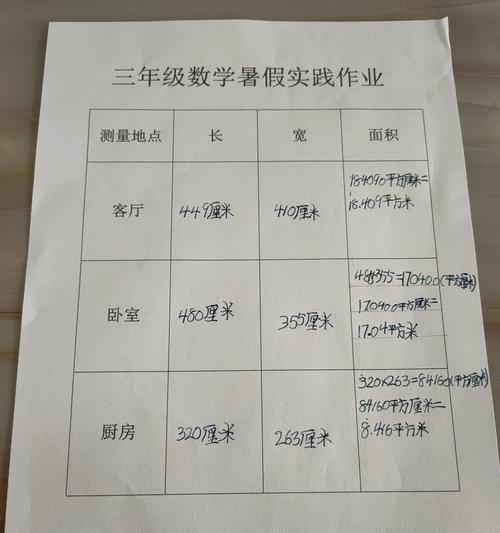 三年级数学暑假实践作业
测量地点 长 宽 面积
客厅 449厘米 410厘米 184090平方厘米=
18.409平方米
卧室 480厘米 355厘米 480×355=170400(平方厘米)
170400平方厘米=
17.04平方米
厨房 320厘米 263厘米 320×263=84160(平方厘米)
84160平方厘米=
8.416平方米